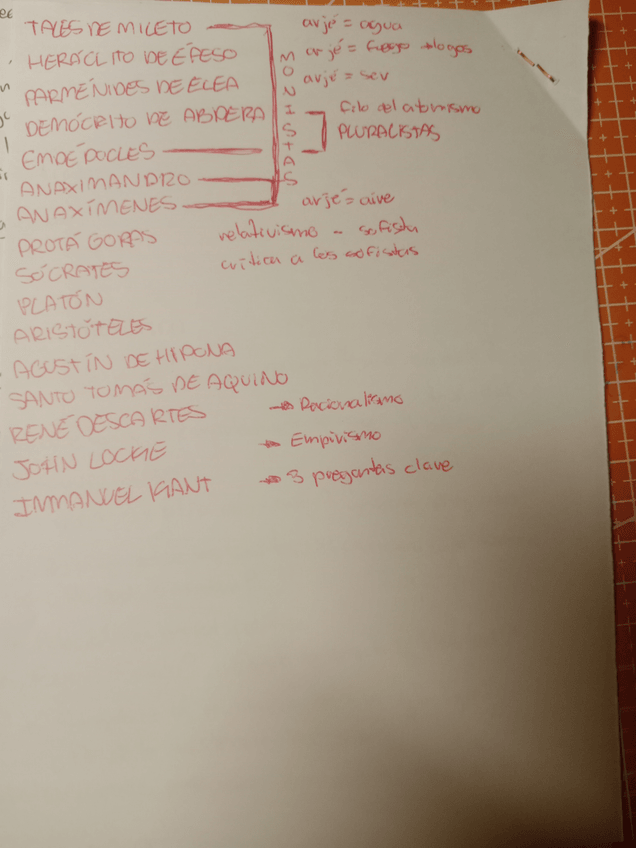 TALES DE MILETO arjé = agua
HERÁCLITO DE ÉFESO arjé = fuego logos
PARMÉNIDES DE ELEA arjé = ser
DEMÓCRITO DE ABDERA filo del atomismo
PLURALISTAS
EMPÉDOCLES
MONISTAS
ANAXIMANDRO
ANAXÍMENES arjé = aire
PROTÁGORAS relativismo - sofista
SÓCRATES crítica a los sofistas
PLATÓN
ARISTÓTELES
AGUSTÍN DE HIPONA
SANTO TOMÁS DE AQUINO
RENÉ DESCARTES → Racionalismo
JOHN LOCKE → Empirismo
IMMANUEL KANT → 3 preguntas clave